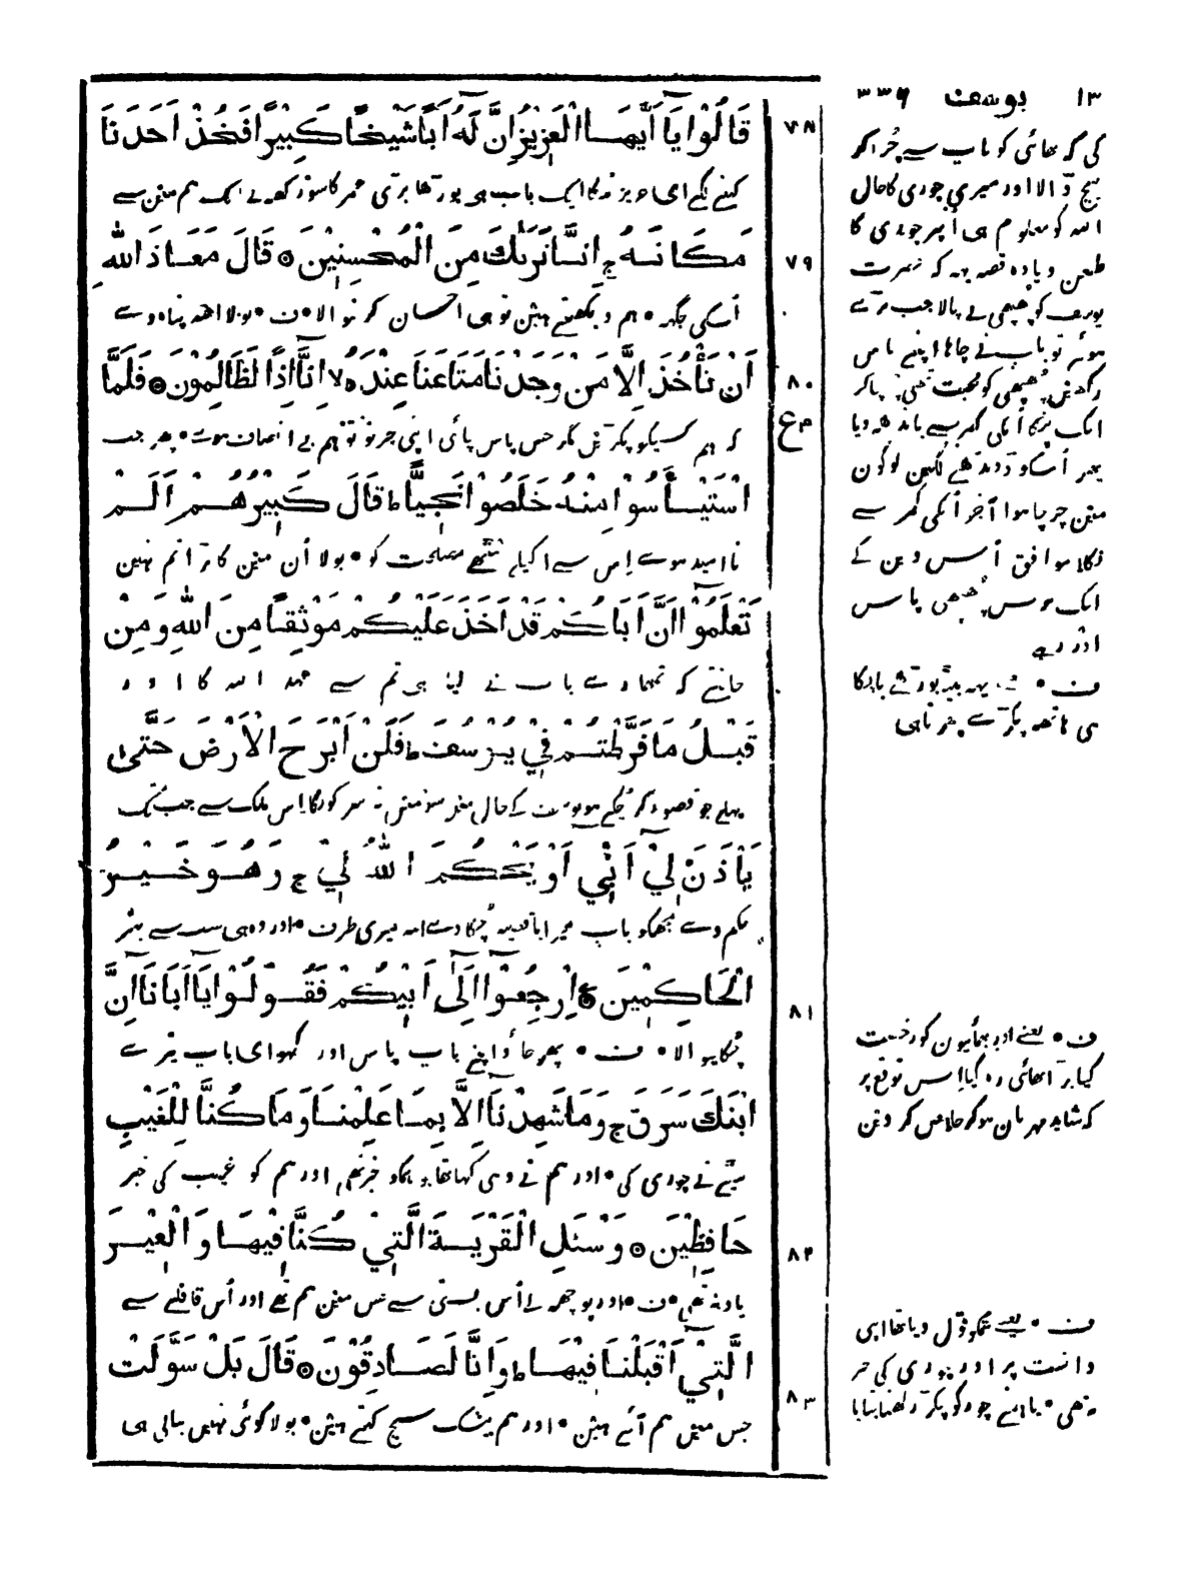 ١٣ يوسف ٣٣٦
قَالُوْا يَآ اَيُّهَا الْعَزِيْزُ اِنَّ لَهٗٓ اَبًا شَيْخًا كَبِيْرًا فَخُذْ اَحَدَنَا
٧٨
کہنے لگے ای عزیز اسکا ایک باپ ہی بوڑھا بڑی عمر کا سو رکھ لے ایک ہم مین سے
مَكَانَهٗ ج اِنَّا نَرٰىكَ مِنَ الْمُحْسِنِيْنَ ۝ قَالَ مَعَاذَ اللهِ
٧٩
اُسکی جگہہ • ہم دیکھتے ہین تو ہی احسان کرنوالا • ف • بولا اللہ پناہ دے
اَنْ نَّأْخُذَ اِلَّا مَنْ وَجَدْنَا مَتَاعَنَا عِنْدَهٗٓ لا اِنَّآ اِذًا لَظَالِمُوْنَ ۝ فَلَمَّا
٨٠
کہ ہم کسیکو پکڑین مگر جس پاس پائی اپنی چیز تو تو ہم بے انصاف ہوے • پھر جب
اسْتَيْـَٔسُوْا مِنْهُ خَلَصُوْا نَجِيًّا ط قَالَ كَبِيْرُهُمْ اَلَمْ
نا امید ہوے اِس سے اکیلے بیٹھے مصلحت کو • بولا اُن مین کا بڑا تم نہین
تَعْلَمُوْٓا اَنَّ اَبَاكُمْ قَدْ اَخَذَ عَلَيْكُمْ مَوْثِقًا مِنَ اللهِ وَمِنْ
جانتے کہ تمہارے باپ نے لیا ہی تم سے عہد اللہ کا اور
قَبْلُ مَا فَرَّطْتُمْ فِيْ يُوْسُفَ ط فَلَنْ اَبْرَحَ الْاَرْضَ حَتّٰى
پہلے جو قصور کر چکے ہو یوسف کے حال مین سو مین نہ سرکونگا اِس ملک سے جب تک
يَأْذَنَ لِيْٓ اَبِيْٓ اَوْ يَحْكُمَ اللهُ لِيْ ج وَهُوَ خَيْرُ
حکم دے مجھکو باپ میرا یا قضیہ چکا دے اللہ میری طرف • اور وہ ہی سب سے بہتر
الْحَاكِمِيْنَ ۝ اِرْجِعُوْٓا اِلٰٓى اَبِيْكُمْ فَقُوْلُوْا يَآ اَبَانَآ اِنَّ
٨١
چکانیوالا • ف • پھر جاؤ اپنے باپ پاس اور کہو ای باپ تیرے
ابْنَكَ سَرَقَ ج وَمَا شَهِدْنَآ اِلَّا بِمَا عَلِمْنَا وَمَا كُنَّا لِلْغَيْبِ
بیٹے نے چوری کی • اور ہم نے وہی کہا تھا جو ہمکو خبر تھی اور ہم کو غیب کی خبر
حَافِظِيْنَ ۝ وَسْئَلِ الْقَرْيَةَ الَّتِيْ كُنَّا فِيْهَا وَالْعِيْرَ
٨٢
یاد نہ تھی • ف • اور پوچھہ لے اُس بستی سے جس مین ہم تھے اور اُس قافلے سے
الَّتِيْٓ اَقْبَلْنَا فِيْهَا ط وَاِنَّا لَصَادِقُوْنَ ۝ قَالَ بَلْ سَوَّلَتْ
٨٣
جس مین ہم آئے ہین • اور ہم بیشک سچ کہتے ہین • بولا کوئی نہین بنا لی ہی
کی کہ بھائی کو باپ سے چُرا کر
بیچ ڈالا اور میری چوری کا حال
اللہ کو معلوم ہی اُپر چوری کا
طعن دیا وہ قصہ یہہ کہ حضرت
یوسف کو پھپھی نے پالا جب بڑے
ہوئے تو باپ نے چاہا اپنے پاس
رکھین پھپھی کو محبت تھی چھپا کر
ایک پٹکا اُنکی کمر سے باندھ دیا
پھر اُسکو ڈھونڈھنے لگین لوگون
مین چرچا ہوا آخر اُنکی کمر سے
نکلا موافق اُس دین کے
ایک برس پھپھی پاس
اور رہے
ف • یہہ بیٹا بوڑھے باپ کا
ہی ہاتھہ پکڑے پھرتا ہی
ف • یعنے اور بھائیون کو رخصت
کیا بڑا بھائی رہ گیا اِس توقع پر
کہ شاید مہربان ہو کر خلاص کر دین
ف • یعنے تمکو قول دیا تھا اپنی
دانست پر اور چوری کی خبر
نہ تھی • یا ہمنے چور کو پکڑ رکھنا بتایا